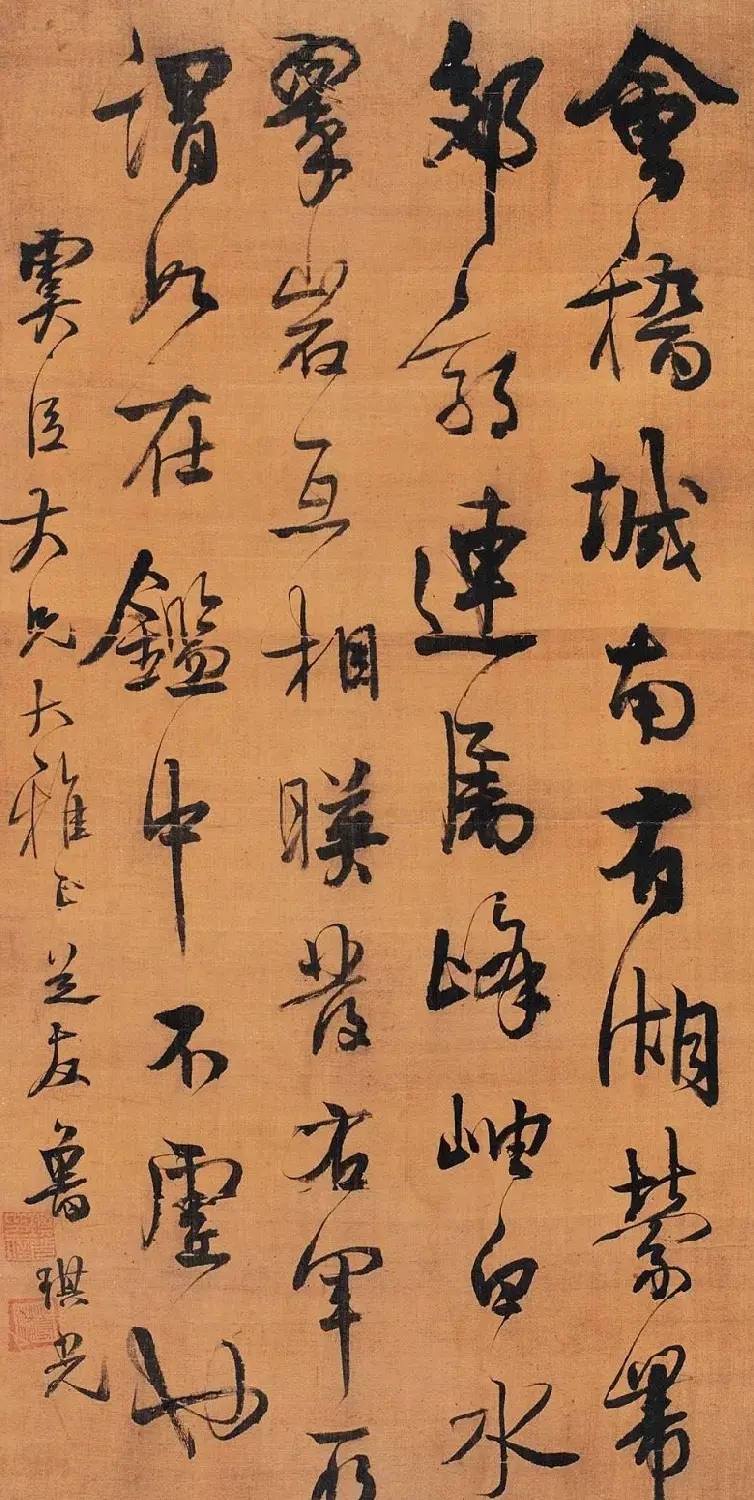 會稽城南有湖縈羃
郊郭連屬峰岫白水
翠岩互相映發右軍所
謂如在鑑中不虛也
雲臣大兄大雅正 芝友魯琪光